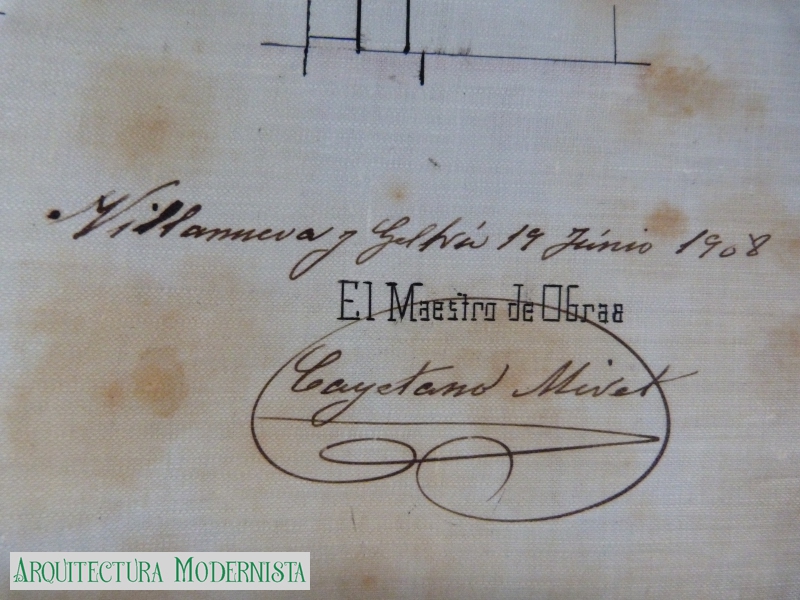 Villanueva y Geltrú 19 Júnio 1908
El Maestro de Obras
Cayetano Miret
ARQUITECTURA MODERNISTA